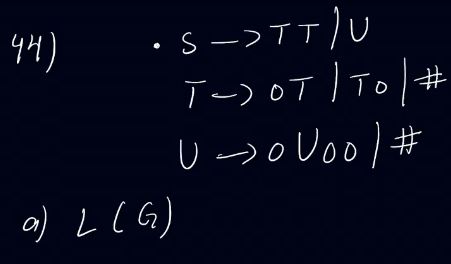 44) • S —> TT | U
T —> 0T | T0 | #
U —> 0U00 | #
a) L(G)